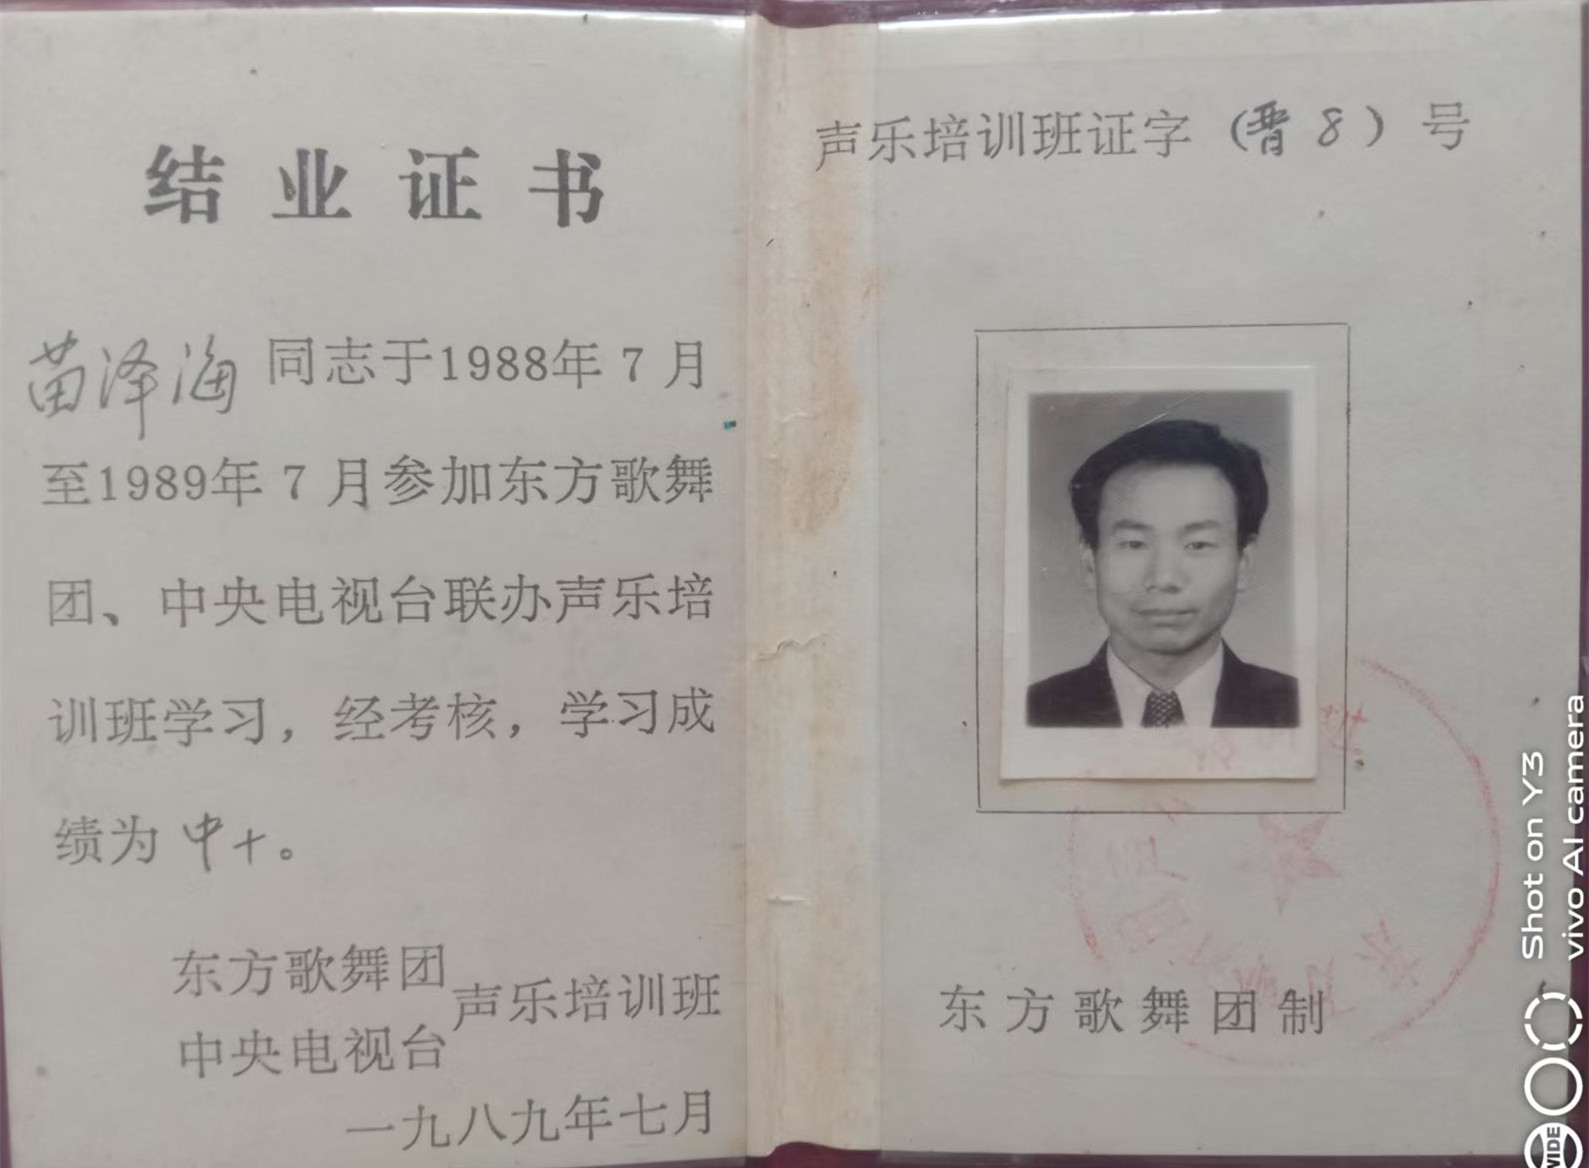 结业证书
苗泽海同志于1988年7月
至1989年7月参加东方歌舞
团、中央电视台联办声乐培
训班学习，经考核，学习成
绩为中+。
东方歌舞团
中央电视台
声乐培训班
一九八九年七月
声乐培训班证字（晋8）号
东方歌舞团制
Shot on Y3
vivo AI camera